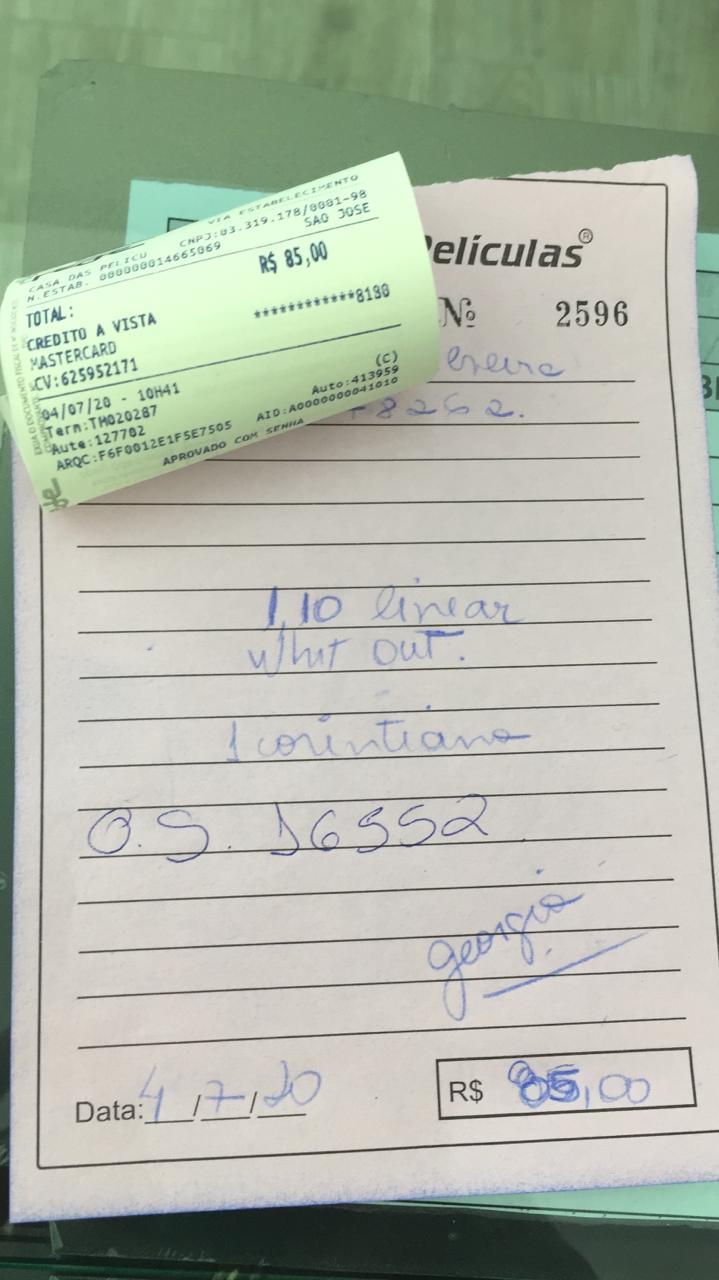 VIA ESTABELECIMENTO
CASA DAS PELICU CNPJ:03.319.178/0001-98
N.ESTAB. 000000014665069 SAO JOSE
TOTAL: R$ 85,00
CREDITO A VISTA ************8130
MASTERCARD
CV:625952171
(C)
04/07/20 - 10H41 Auto:413959
Term:TM020287 AID:A0000000041010
Aute:127702
ARQC:F6F0012E1F5E7505
APROVADO COM SENHA
Películas®
Nº 2596
8262.
1,10 linear
whit out.
1 corintiano
O.S. 16552
georgia
Data: 4/7/20
R$ 85,00